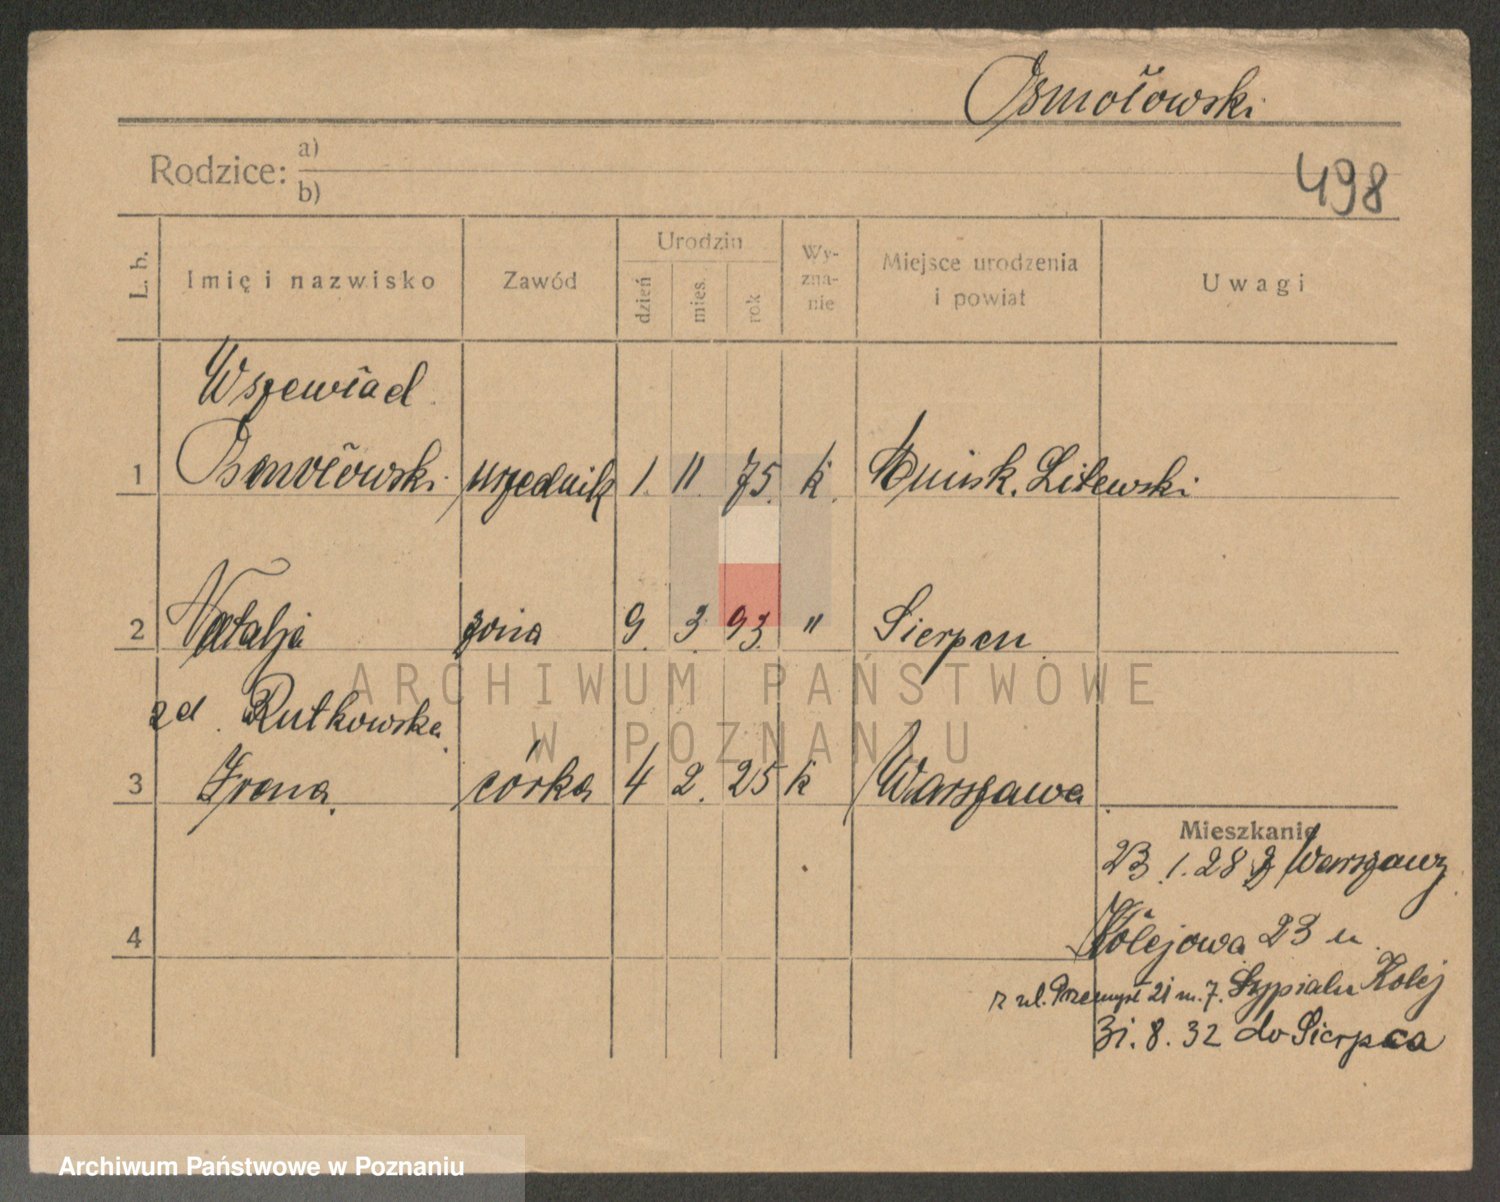 Osmołowski
Rodzice: a)
b)
498
L. b. Imię i nazwisko Zawód Urodzin dzień mies. rok Wy-zna-nie Miejsce urodzenia i powiat Uwagi
Wszewład
1 Osmołowski urzędnik 1. 11. 75. k. Mińsk. Litewski
2 Natalja żona 9. 3. 93. " Sierpcu
zd. Rutkowska
3 Irena córka 4 2. 25 k Warszawa
Mieszkanie
23.1.28 z Warszawy
4 Kolejowa 23 u.
z ul. Przemysł 21 m. 7. Kolej
31. 8. 32 do Sierpca
ARCHIWUM PAŃSTWOWE
W POZNANIU
Archiwum Państwowe w Poznaniu